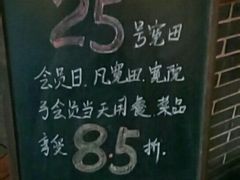 25号宽田
会员日.凡宽田.宽院
会员当天用餐.菜品
享受8.5折.